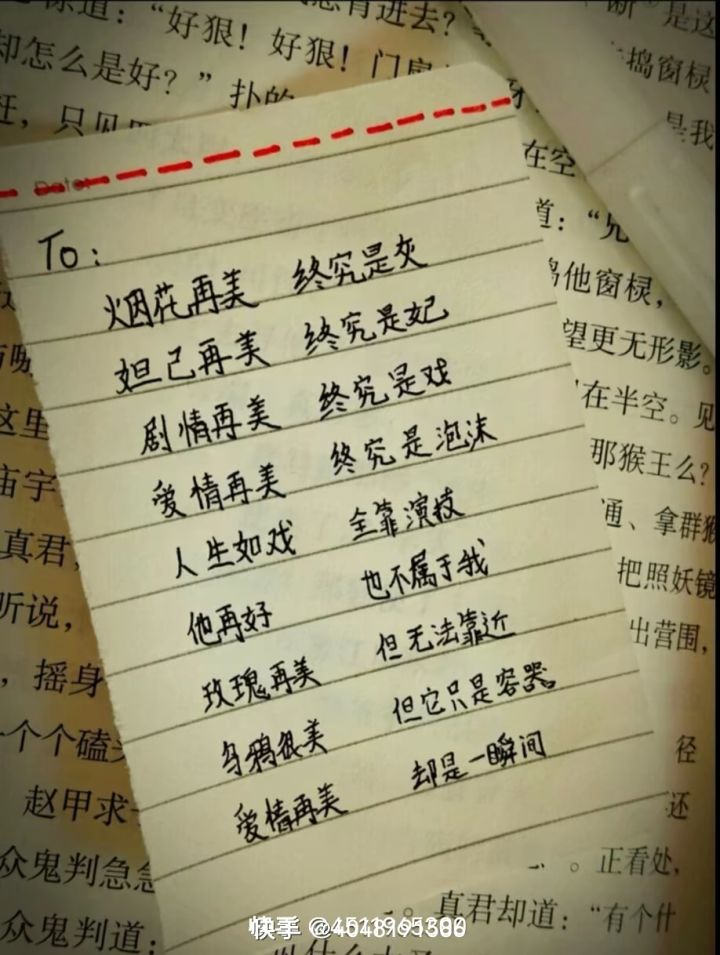 道：“好狠！好狠！门户
却怎么是好？”扑的
赶，只见四
Date:
To:
烟花再美 终究是灰
妲己再美 终究是妃
剧情再美 终究是戏
爱情再美 终究是泡沫
人生如戏 全靠演技
他再好 也不属于我
玫瑰再美 但无法靠近
乌鸦很美 但它只是容器。
爱情再美 却是一瞬间
进去？
是这
捣窗棂
是我
在空
道：“
捣他窗棂，
望更无形影。
在半空。见
那猴王么？
通、拿群猴
把照妖镜
出营围，
径
还
。正看处，
。真君却道：“有个什
这里
庙宇
真君，
听说，
，摇身
一个个磕头
赵甲求
众鬼判急急
众鬼判道：
快手